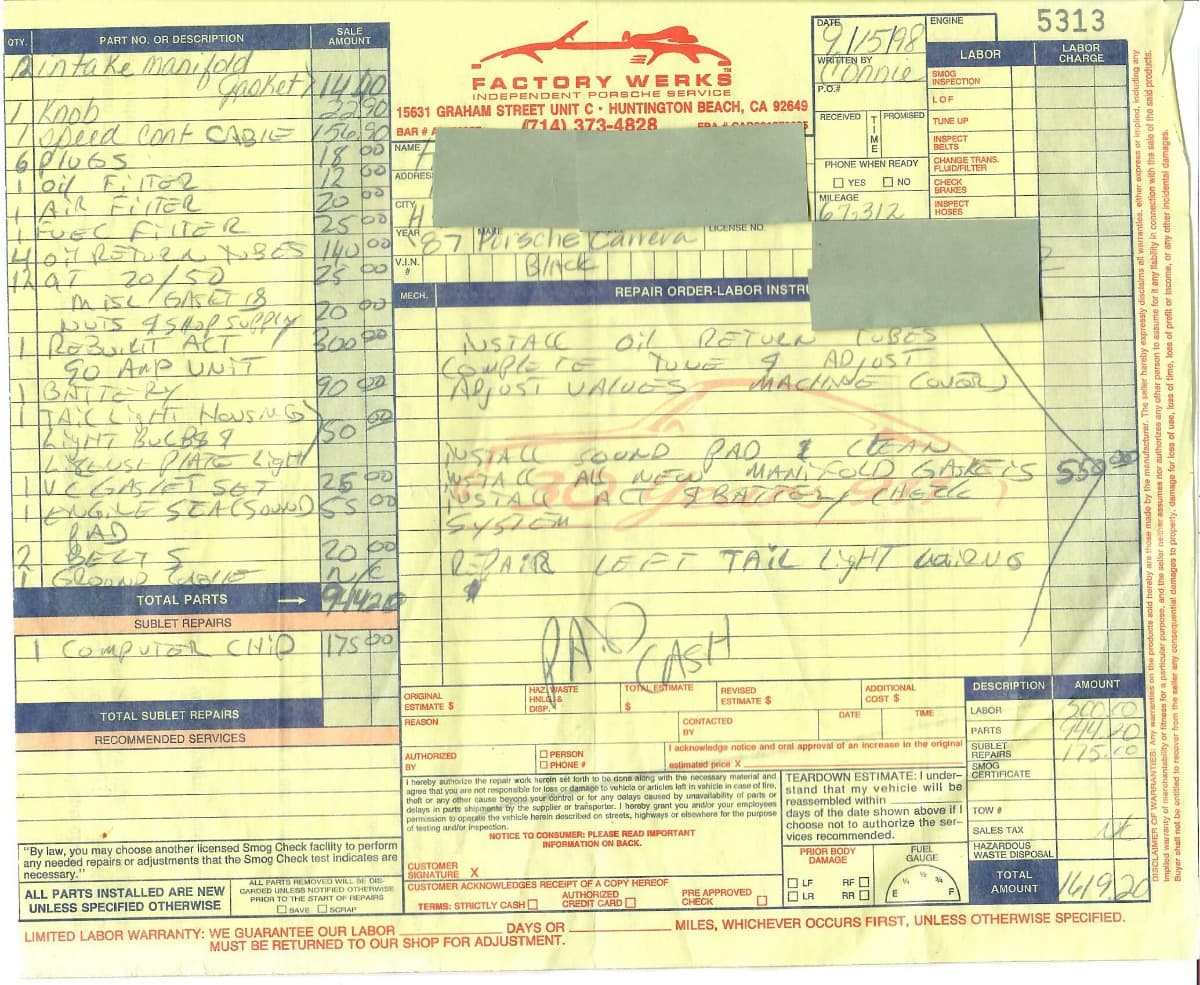 5313
QTY.
PART NO. OR DESCRIPTION
SALE AMOUNT
2 intake manifold
gasket) 14.40
1 Knob 22 90
1 Speed Cont CABLE 156.90
6 PLUGS 18 00
1 OIL FILTER 12 00
1 AIR FILTER 20 00
1 FUEL FILTER 25 00
4 OIL RETURN TUBES 140 00
12 QT 20/50 25 00
MISC/GASKETS
NUTS & SHOP SUPPLY 20 00
1 REBUILT ACT 300 00
90 AMP UNIT
1 BATTERY 90 00
1 TAIL LIGHT HOUSING)
LIGHT BULBS & 50 00
LICENSE PLATE LIGHT
1 VC GASKET SET 25 00
1 ENGINE SEAL SOUND 55 00
PAD
2 BELTS 20 00
1 GROUND CABLE N/C
TOTAL PARTS → 944 20
SUBLET REPAIRS
1 COMPUTER CHIP 175 00
TOTAL SUBLET REPAIRS
RECOMMENDED SERVICES
"By law, you may choose another licensed Smog Check facility to perform
any needed repairs or adjustments that the Smog Check test indicates are
necessary."
ALL PARTS INSTALLED ARE NEW
UNLESS SPECIFIED OTHERWISE
ALL PARTS REMOVED WILL BE DIS-
CARDED UNLESS NOTIFIED OTHERWISE
PRIOR TO THE START OF REPAIRS
SAVE SCRAP
FACTORY WERKS
INDEPENDENT PORSCHE SERVICE
15631 GRAHAM STREET UNIT C • HUNTINGTON BEACH, CA 92649
(714) 373-4828
BAR # A
NAME
ADDRESS
CITY H
YEAR '87 MAKE Porsche Carrera LICENSE NO.
V.I.N. # Black
MECH.
REPAIR ORDER-LABOR INSTRU
INSTALL OIL RETURN TUBES
COMPLETE TUNE & ADJUST
ADJUST VALVES MACHINE COVERS
INSTALL SOUND PAD & CLEAN
INSTALL ALL NEW MANIFOLD GASKETS 550 00
INSTALL ACT & BATTERY CHECK
SYSTEM
REPAIR LEFT TAIL LIGHT WIRING
PAID CASH
DATE 9/15/98
ENGINE
WRITTEN BY Connie
P.O.#
RECEIVED
TIME
PROMISED
PHONE WHEN READY
YES NO
MILEAGE
67,312
LABOR
LABOR CHARGE
SMOG INSPECTION
LOF
TUNE UP
INSPECT BELTS
CHANGE TRANS. FLUID/FILTER
CHECK BRAKES
INSPECT HOSES
ORIGINAL ESTIMATE $
HAZ. WASTE HNLG & DISP.
TOTAL ESTIMATE $
REVISED ESTIMATE $
ADDITIONAL COST $
REASON
CONTACTED BY
DATE
TIME
AUTHORIZED BY
PERSON
PHONE #
I acknowledge notice and oral approval of an increase in the original
estimated price X
I hereby authorize the repair work herein set forth to be done along with the necessary material and
agree that you are not responsible for loss or damage to vehicle or articles left in vehicle in case of fire,
theft or any other cause beyond your control or for any delays caused by unavailability of parts or
delays in parts shipments by the supplier or transporter. I hereby grant you and/or your employees
permission to operate the vehicle herein described on streets, highways or elsewhere for the purpose
of testing and/or inspection.
NOTICE TO CONSUMER: PLEASE READ IMPORTANT
INFORMATION ON BACK.
CUSTOMER SIGNATURE X
CUSTOMER ACKNOWLEDGES RECEIPT OF A COPY HEREOF
TERMS: STRICTLY CASH
AUTHORIZED CREDIT CARD
PRE APPROVED CHECK
TEARDOWN ESTIMATE: I under-
stand that my vehicle will be
reassembled within
days of the date shown above if I
choose not to authorize the ser-
vices recommended.
PRIOR BODY DAMAGE
LF RF
LR RR
FUEL GAUGE
E ¼ ½ ¾ F
DESCRIPTION AMOUNT
LABOR 500.00
PARTS 944.20
SUBLET REPAIRS 175.00
SMOG CERTIFICATE
TOW #
SALES TAX NC
HAZARDOUS WASTE DISPOSAL
TOTAL AMOUNT 1619.20
LIMITED LABOR WARRANTY: WE GUARANTEE OUR LABOR DAYS OR MILES, WHICHEVER OCCURS FIRST, UNLESS OTHERWISE SPECIFIED.
MUST BE RETURNED TO OUR SHOP FOR ADJUSTMENT.
DISCLAIMER OF WARRANTIES: Any warranties on the products sold hereby are those made by the manufacturer. The seller hereby expressly disclaims all warranties, either express or implied, including any
implied warranty of merchantability or fitness for a particular purpose, and the seller neither assumes nor authorizes any other person to assume for it any liability in connection with the sale of the said products.
Buyer shall not be entitled to recover from the seller any consequential damages to property, damage for loss of use, loss of time, loss of profit or income, or any other incidental damages.